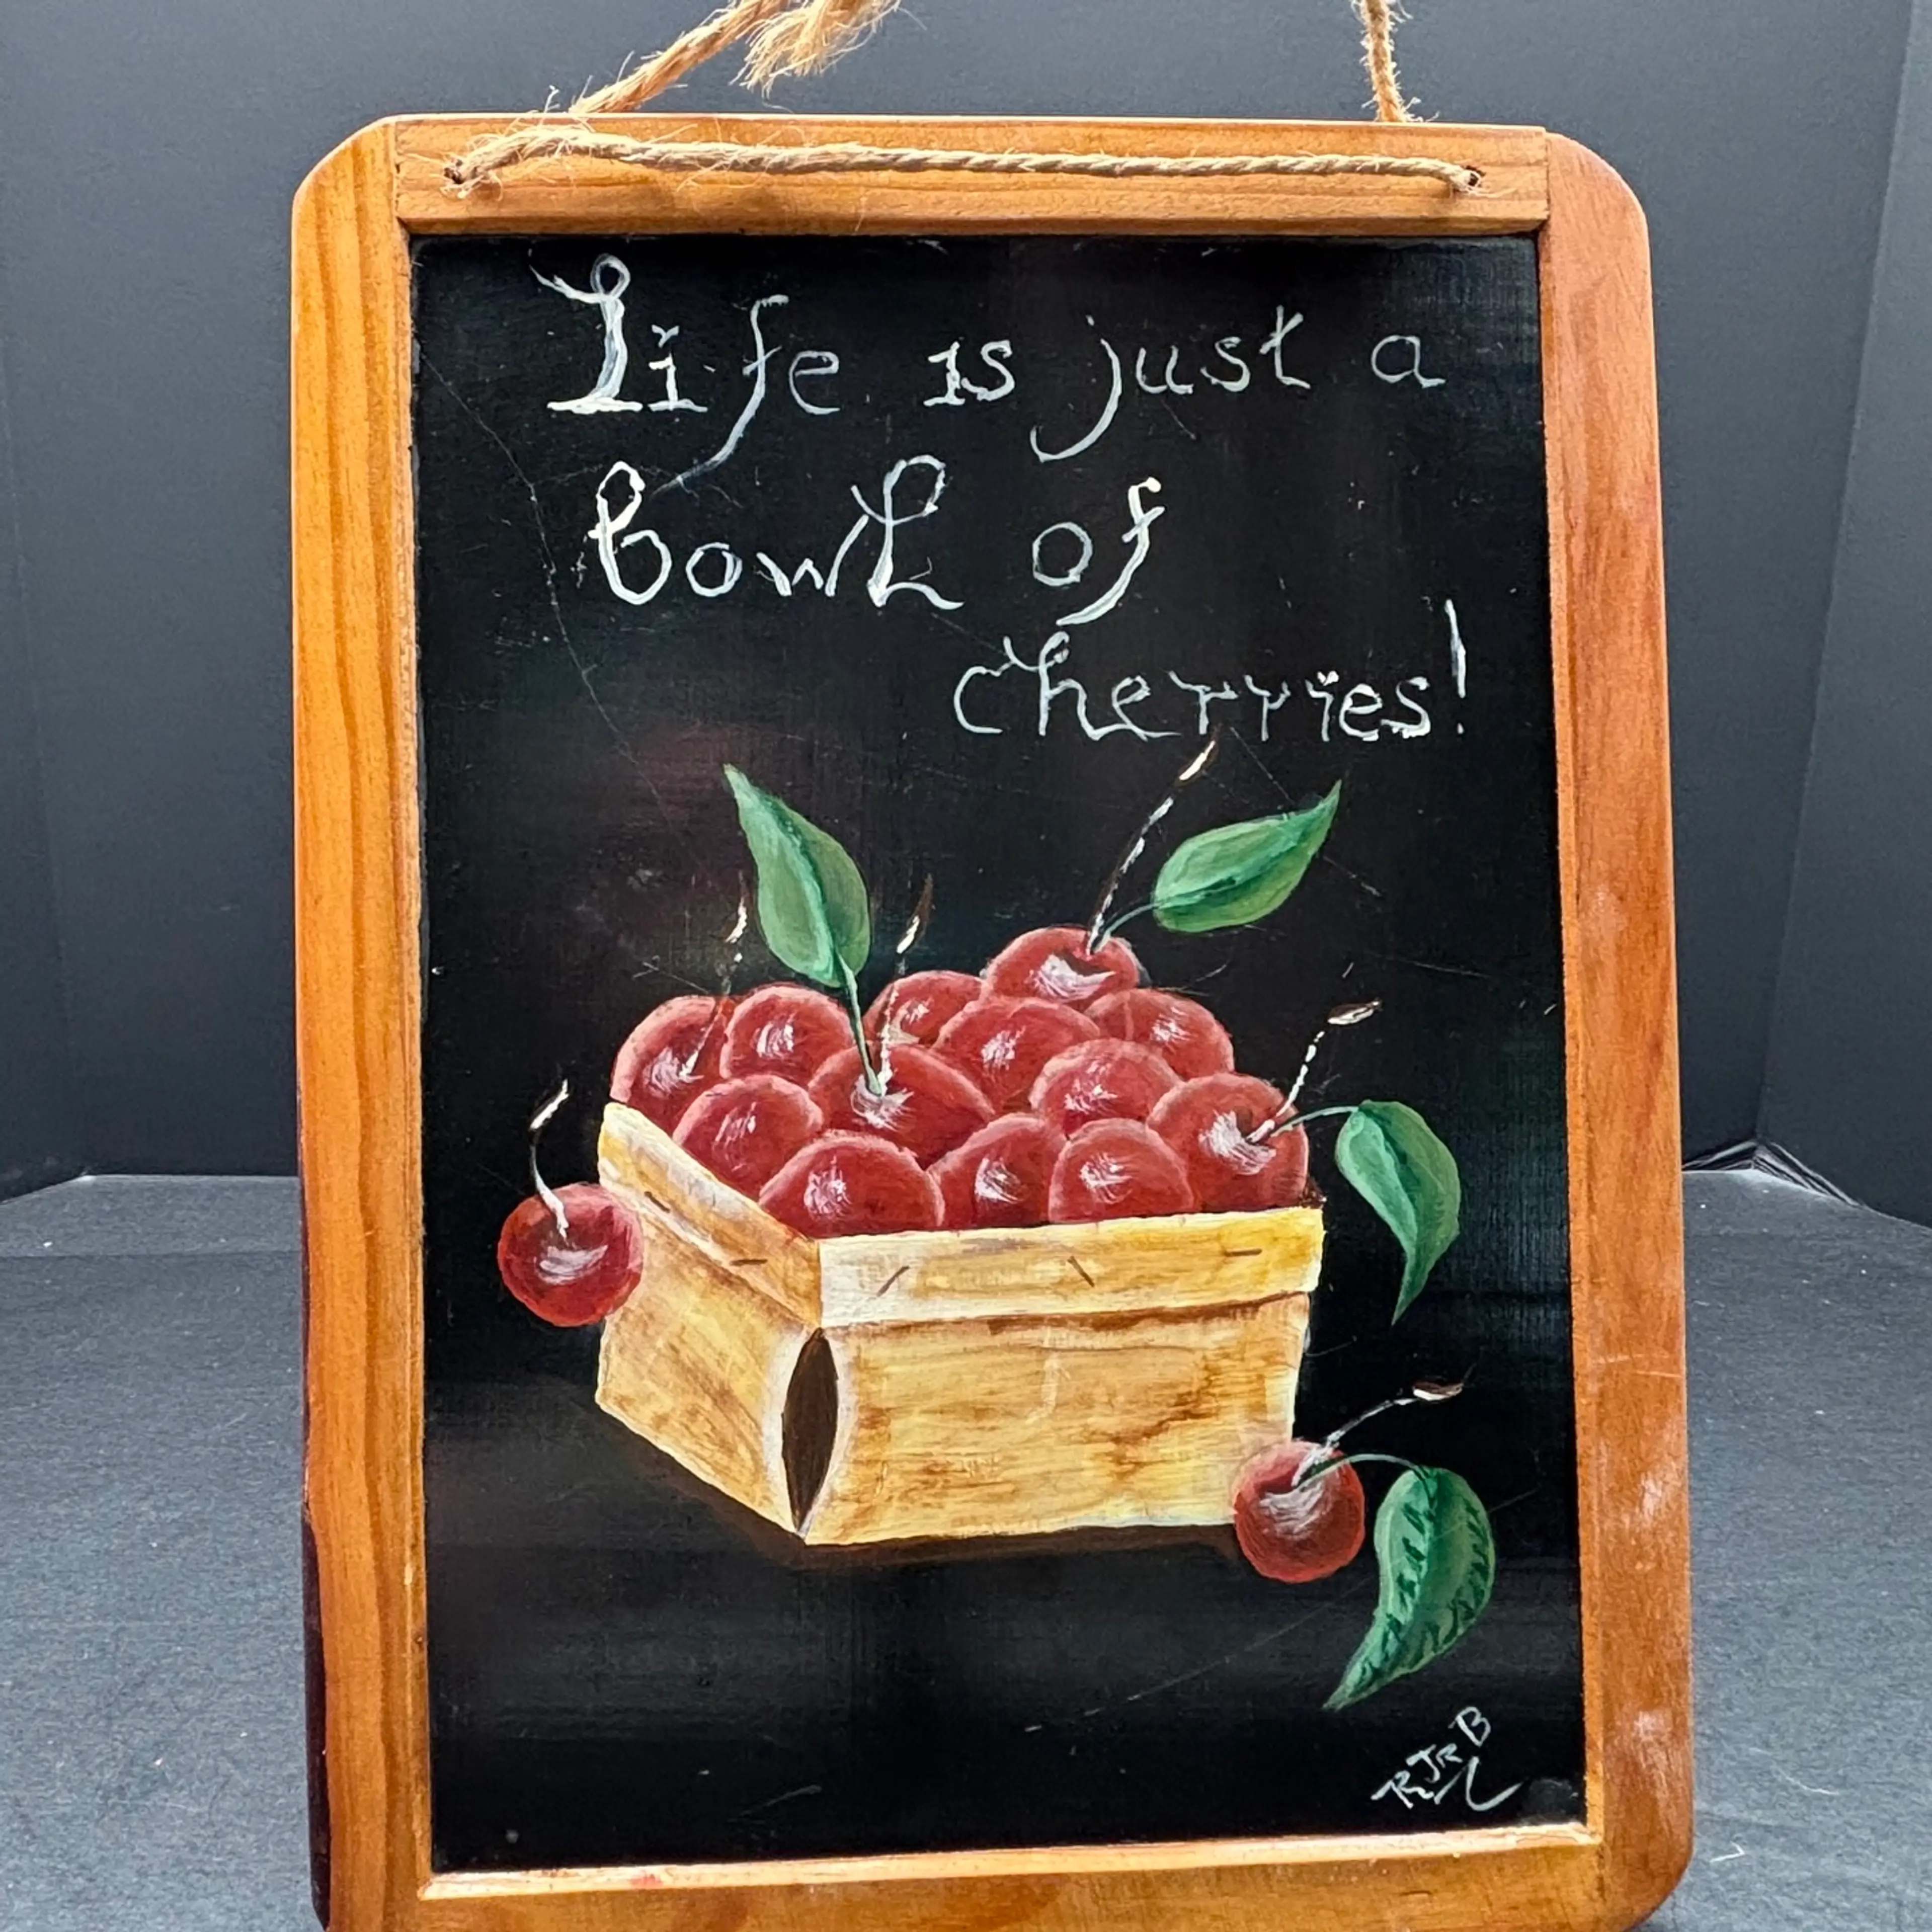 Life is just a
bowl of
cherries!